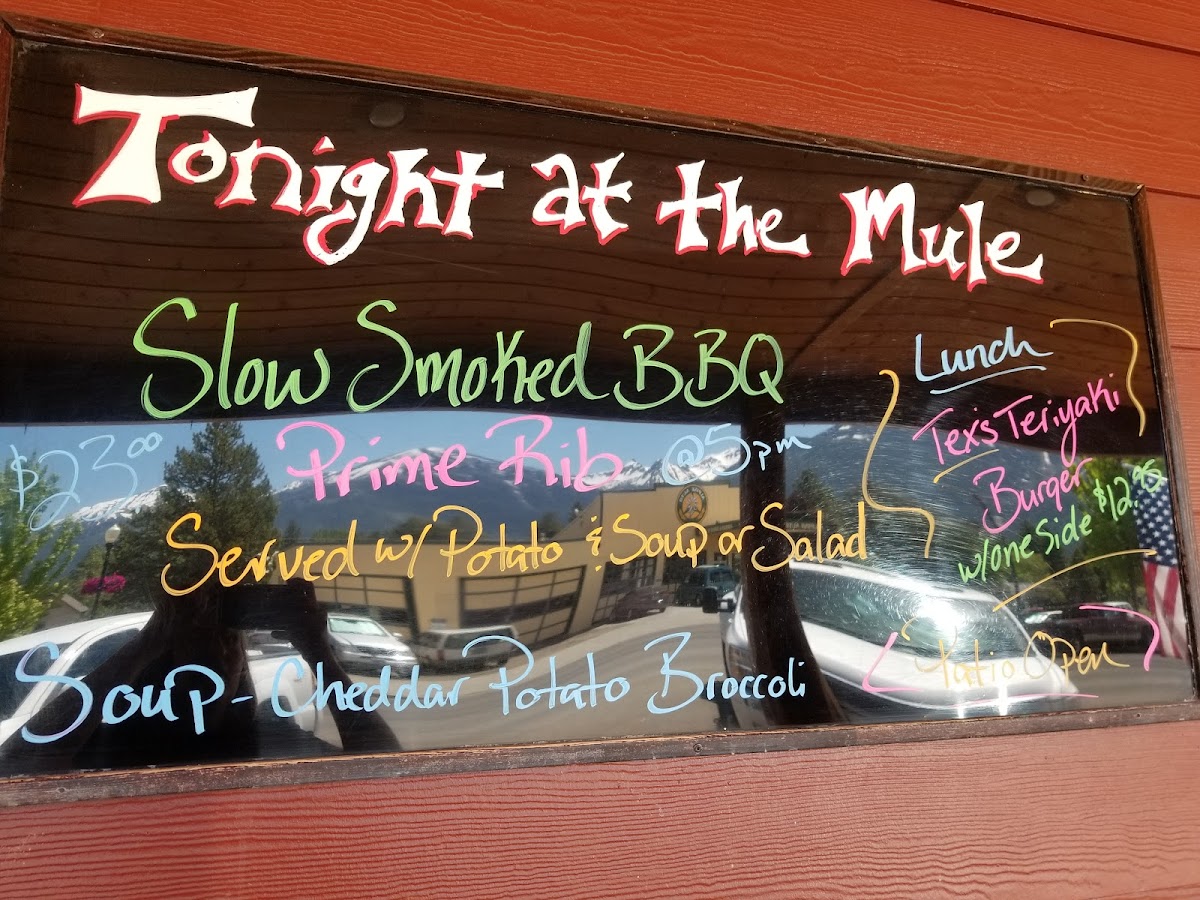 Tonight at the Mule
Slow Smoked BBQ
$23.00
Prime Rib @ 5pm
Served w/ Potato & Soup or Salad
Soup - Cheddar Potato Broccoli
Lunch
Tex's Teriyaki
Burger
w/one Side $12.95
Patio Open